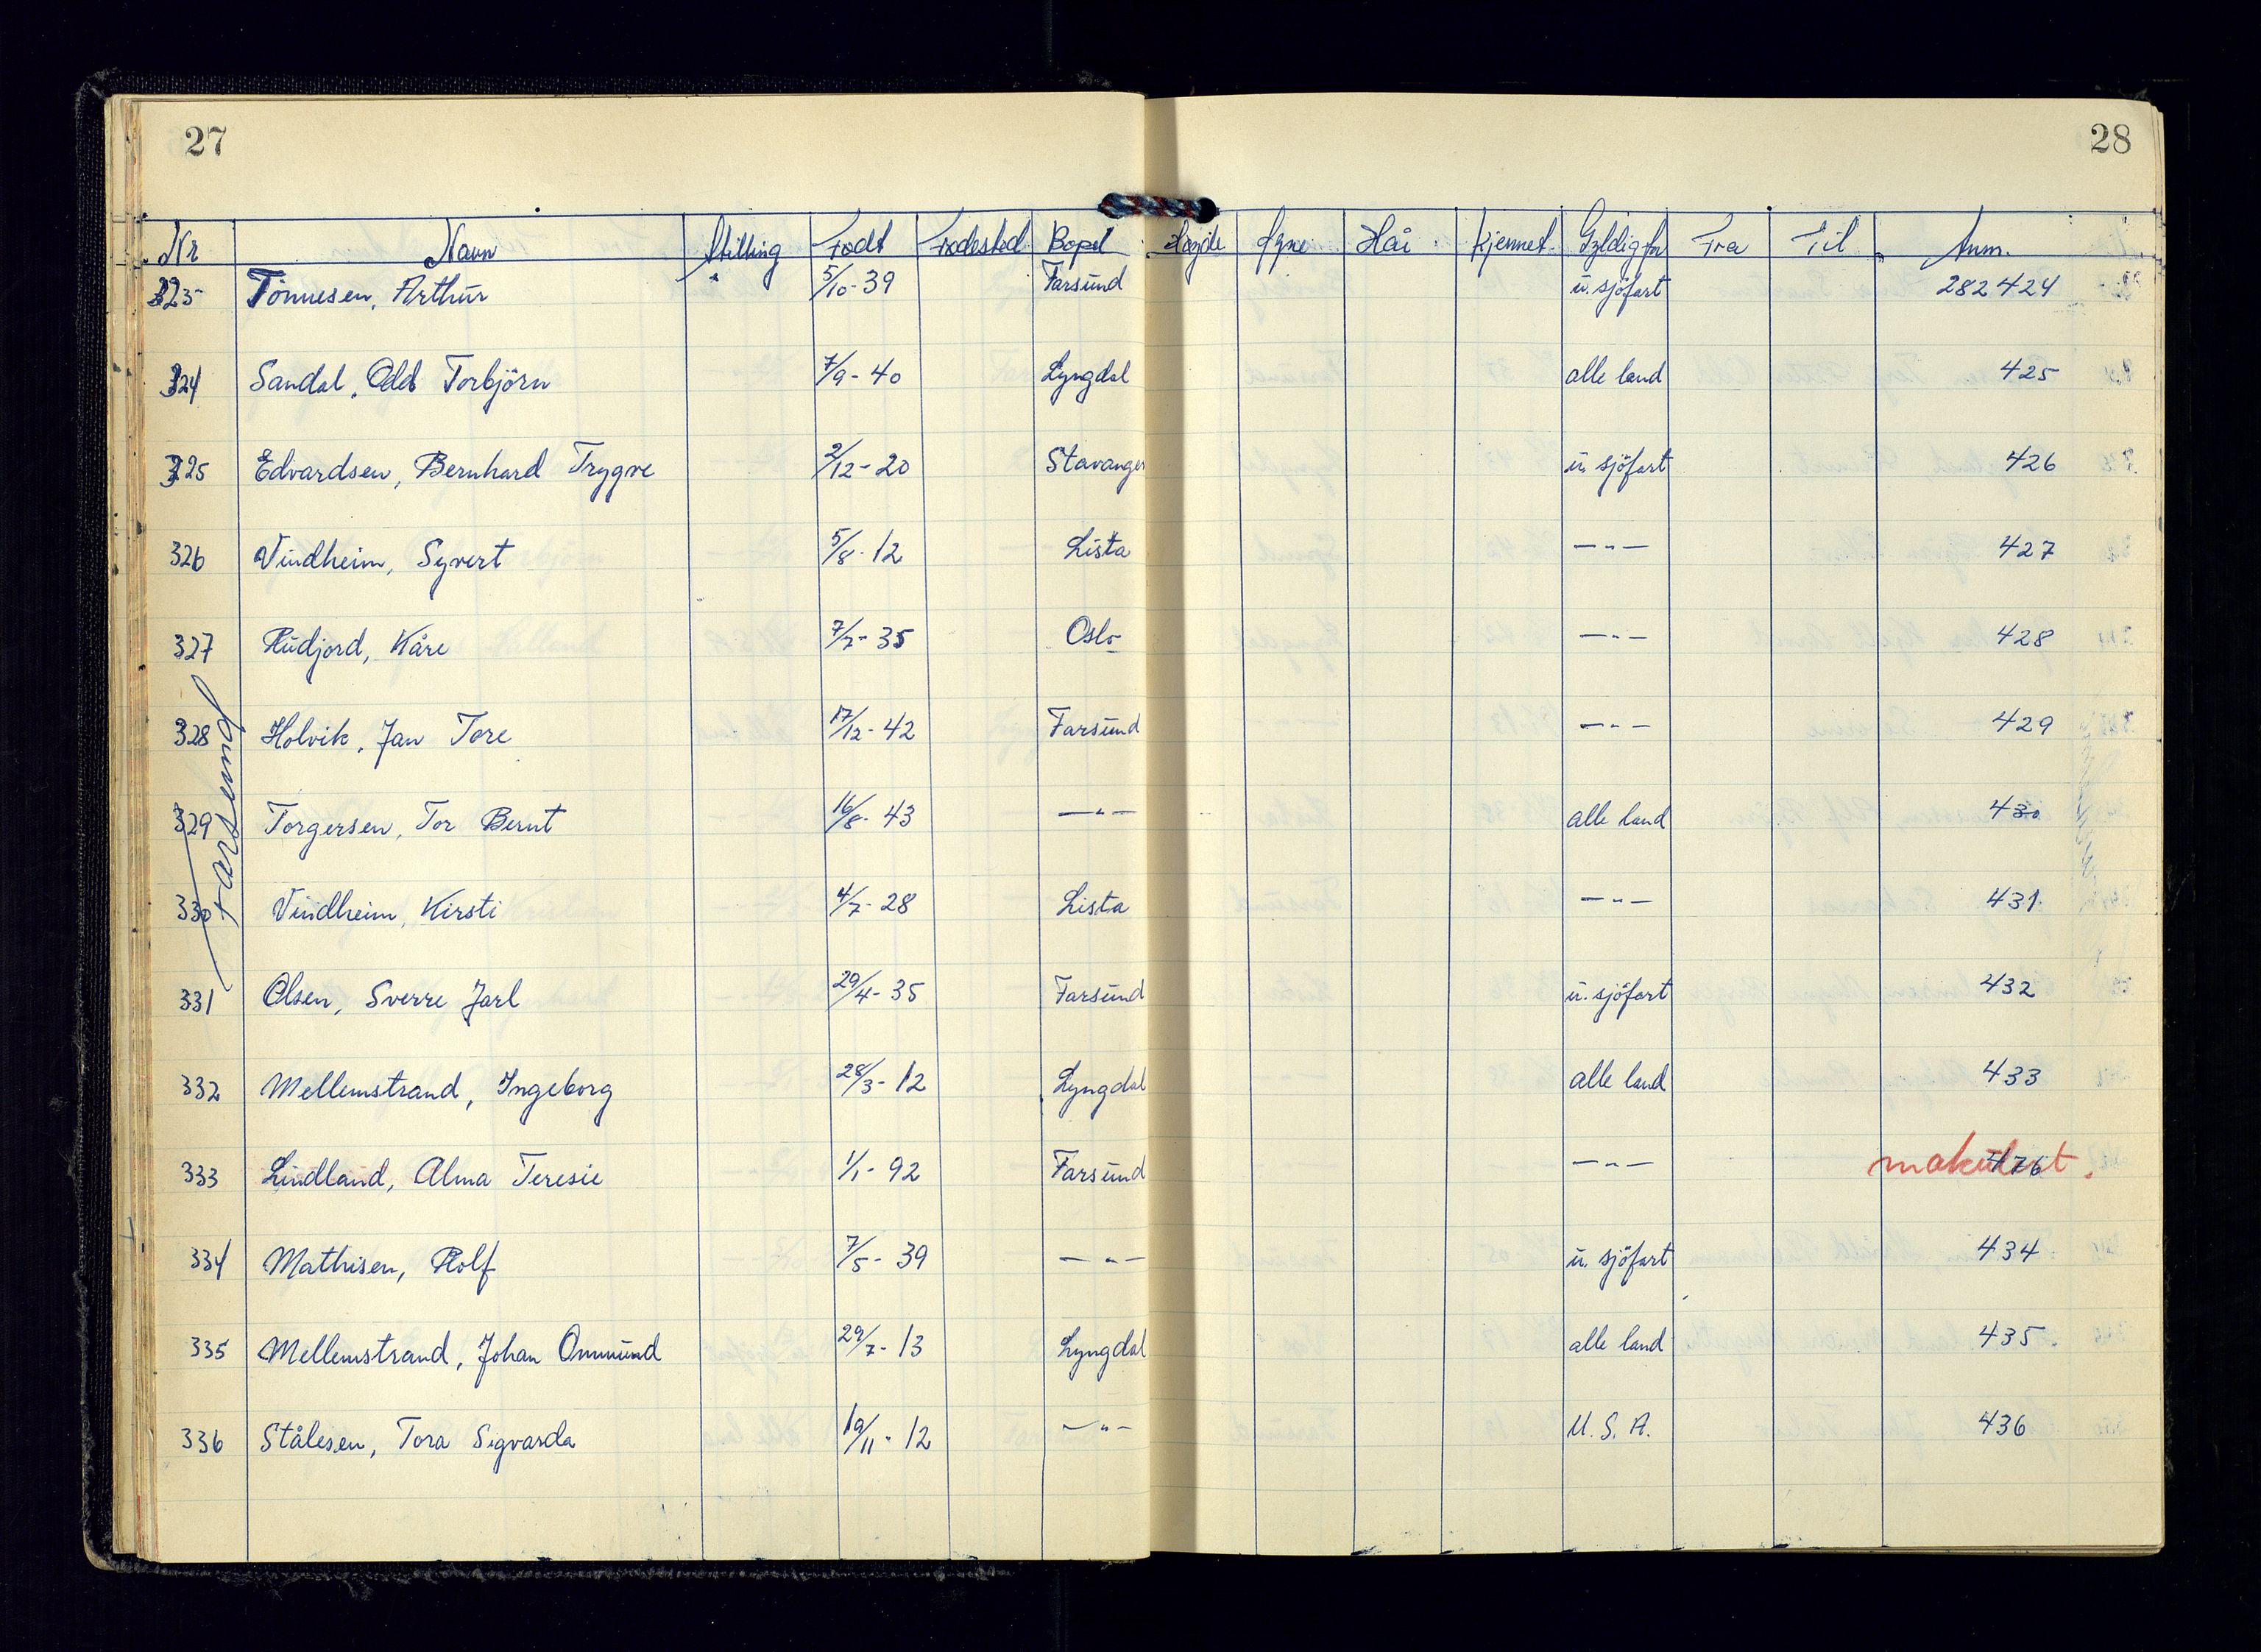 27
28
Nr Navn Stilling Født Fødested Bopel Høyde Øyne Hår Kjennet. Gyldig for Fra Til Anm.
323 Tönnesen, Arthur 5/10-39 Farsund u. sjöfart 282424
324 Sandal, Odd Torbjörn 7/9-40 Lyngdal alle land 425
325 Edvardsen, Bernhard Trygve 2/12-20 Stavanger u. sjöfart 426
326 Vindheim, Syvert 5/8-12 Lista —"— 427
327 Rudjord, Kåre 7/7-35 Oslo —"— 428
328 Holvik, Jan Tore 17/12-42 Farsund —"— 429
329 Torgersen, Tor Bernt 16/8-43 —"— alle land 430
330 Vindheim, Kirsti 4/7-28 Lista —"— 431
Farsund
331 Olsen, Sverre Jarl 29/4-35 Farsund u. sjöfart 432
332 Mellemstrand, Ingeborg 28/3-12 Lyngdal alle land 433
333 Lindland, Alma Teresie 1/1-92 Farsund —"— 476 makulert.
334 Mathisen, Rolf 7/5-39 —"— u. sjöfart 434
335 Mellemstrand, Johan Ommund 29/7-13 Lyngdal alle land 435
336 Stålesen, Tora Sigvarda 19/11-12 —"— U.S.A. 436